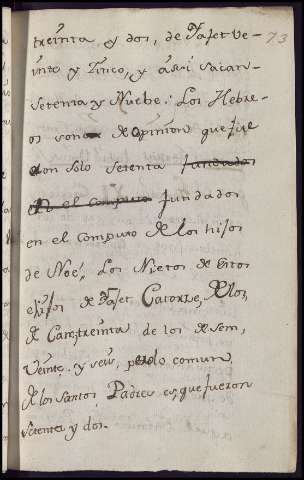 73
treinta y dos, de Jafet ve-
inte y Zinco, y assi sacan
setenta y Nuebe: Los Hebre-
os son de opinion que fue
ron solo setenta fundados
en el computo fundados
en el computo de los hijos
de Noé, Los Nietos de estos
hijos de Jafet Catorze, de los
de Cam, treinta de los de sem,
veinte y seis, pero lo comun
de los santos Padres es, que fueron
setenta y dos.